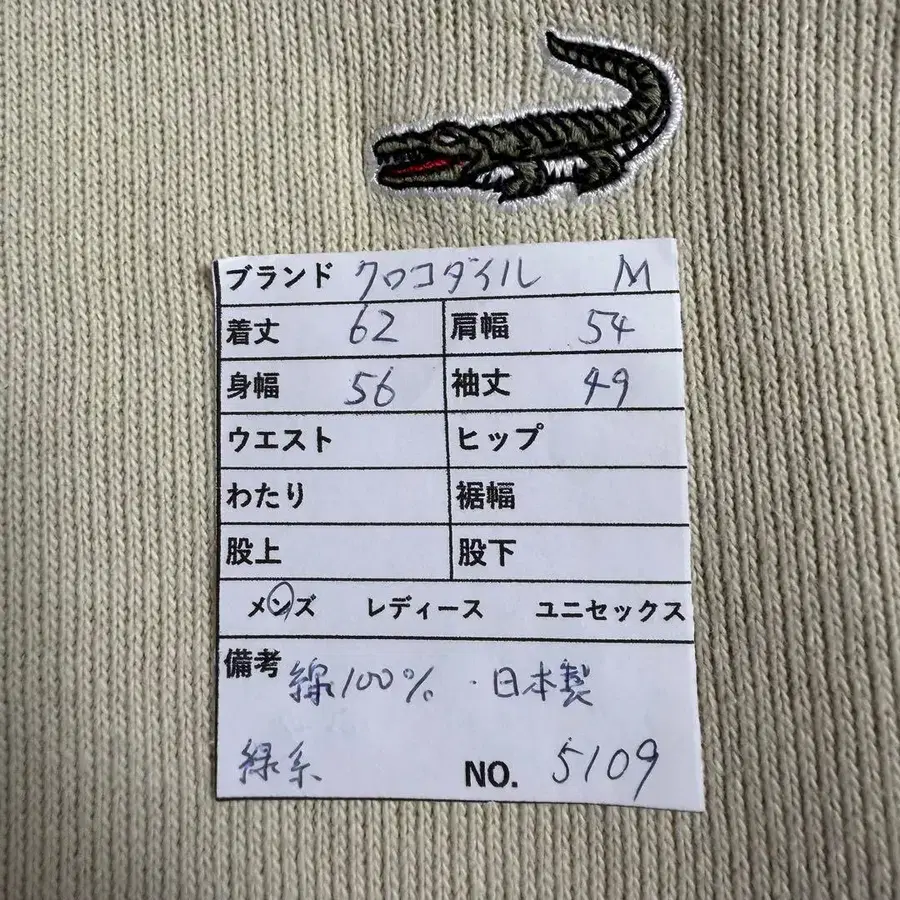 ブランド クロコダイル M
着丈 62 肩幅 54
身幅 56 袖丈 49
ウエスト ヒップ
わたり 裾幅
股上 股下
メンズ レディース ユニセックス
備考 綿100%・日本製
緑系 NO. 5109